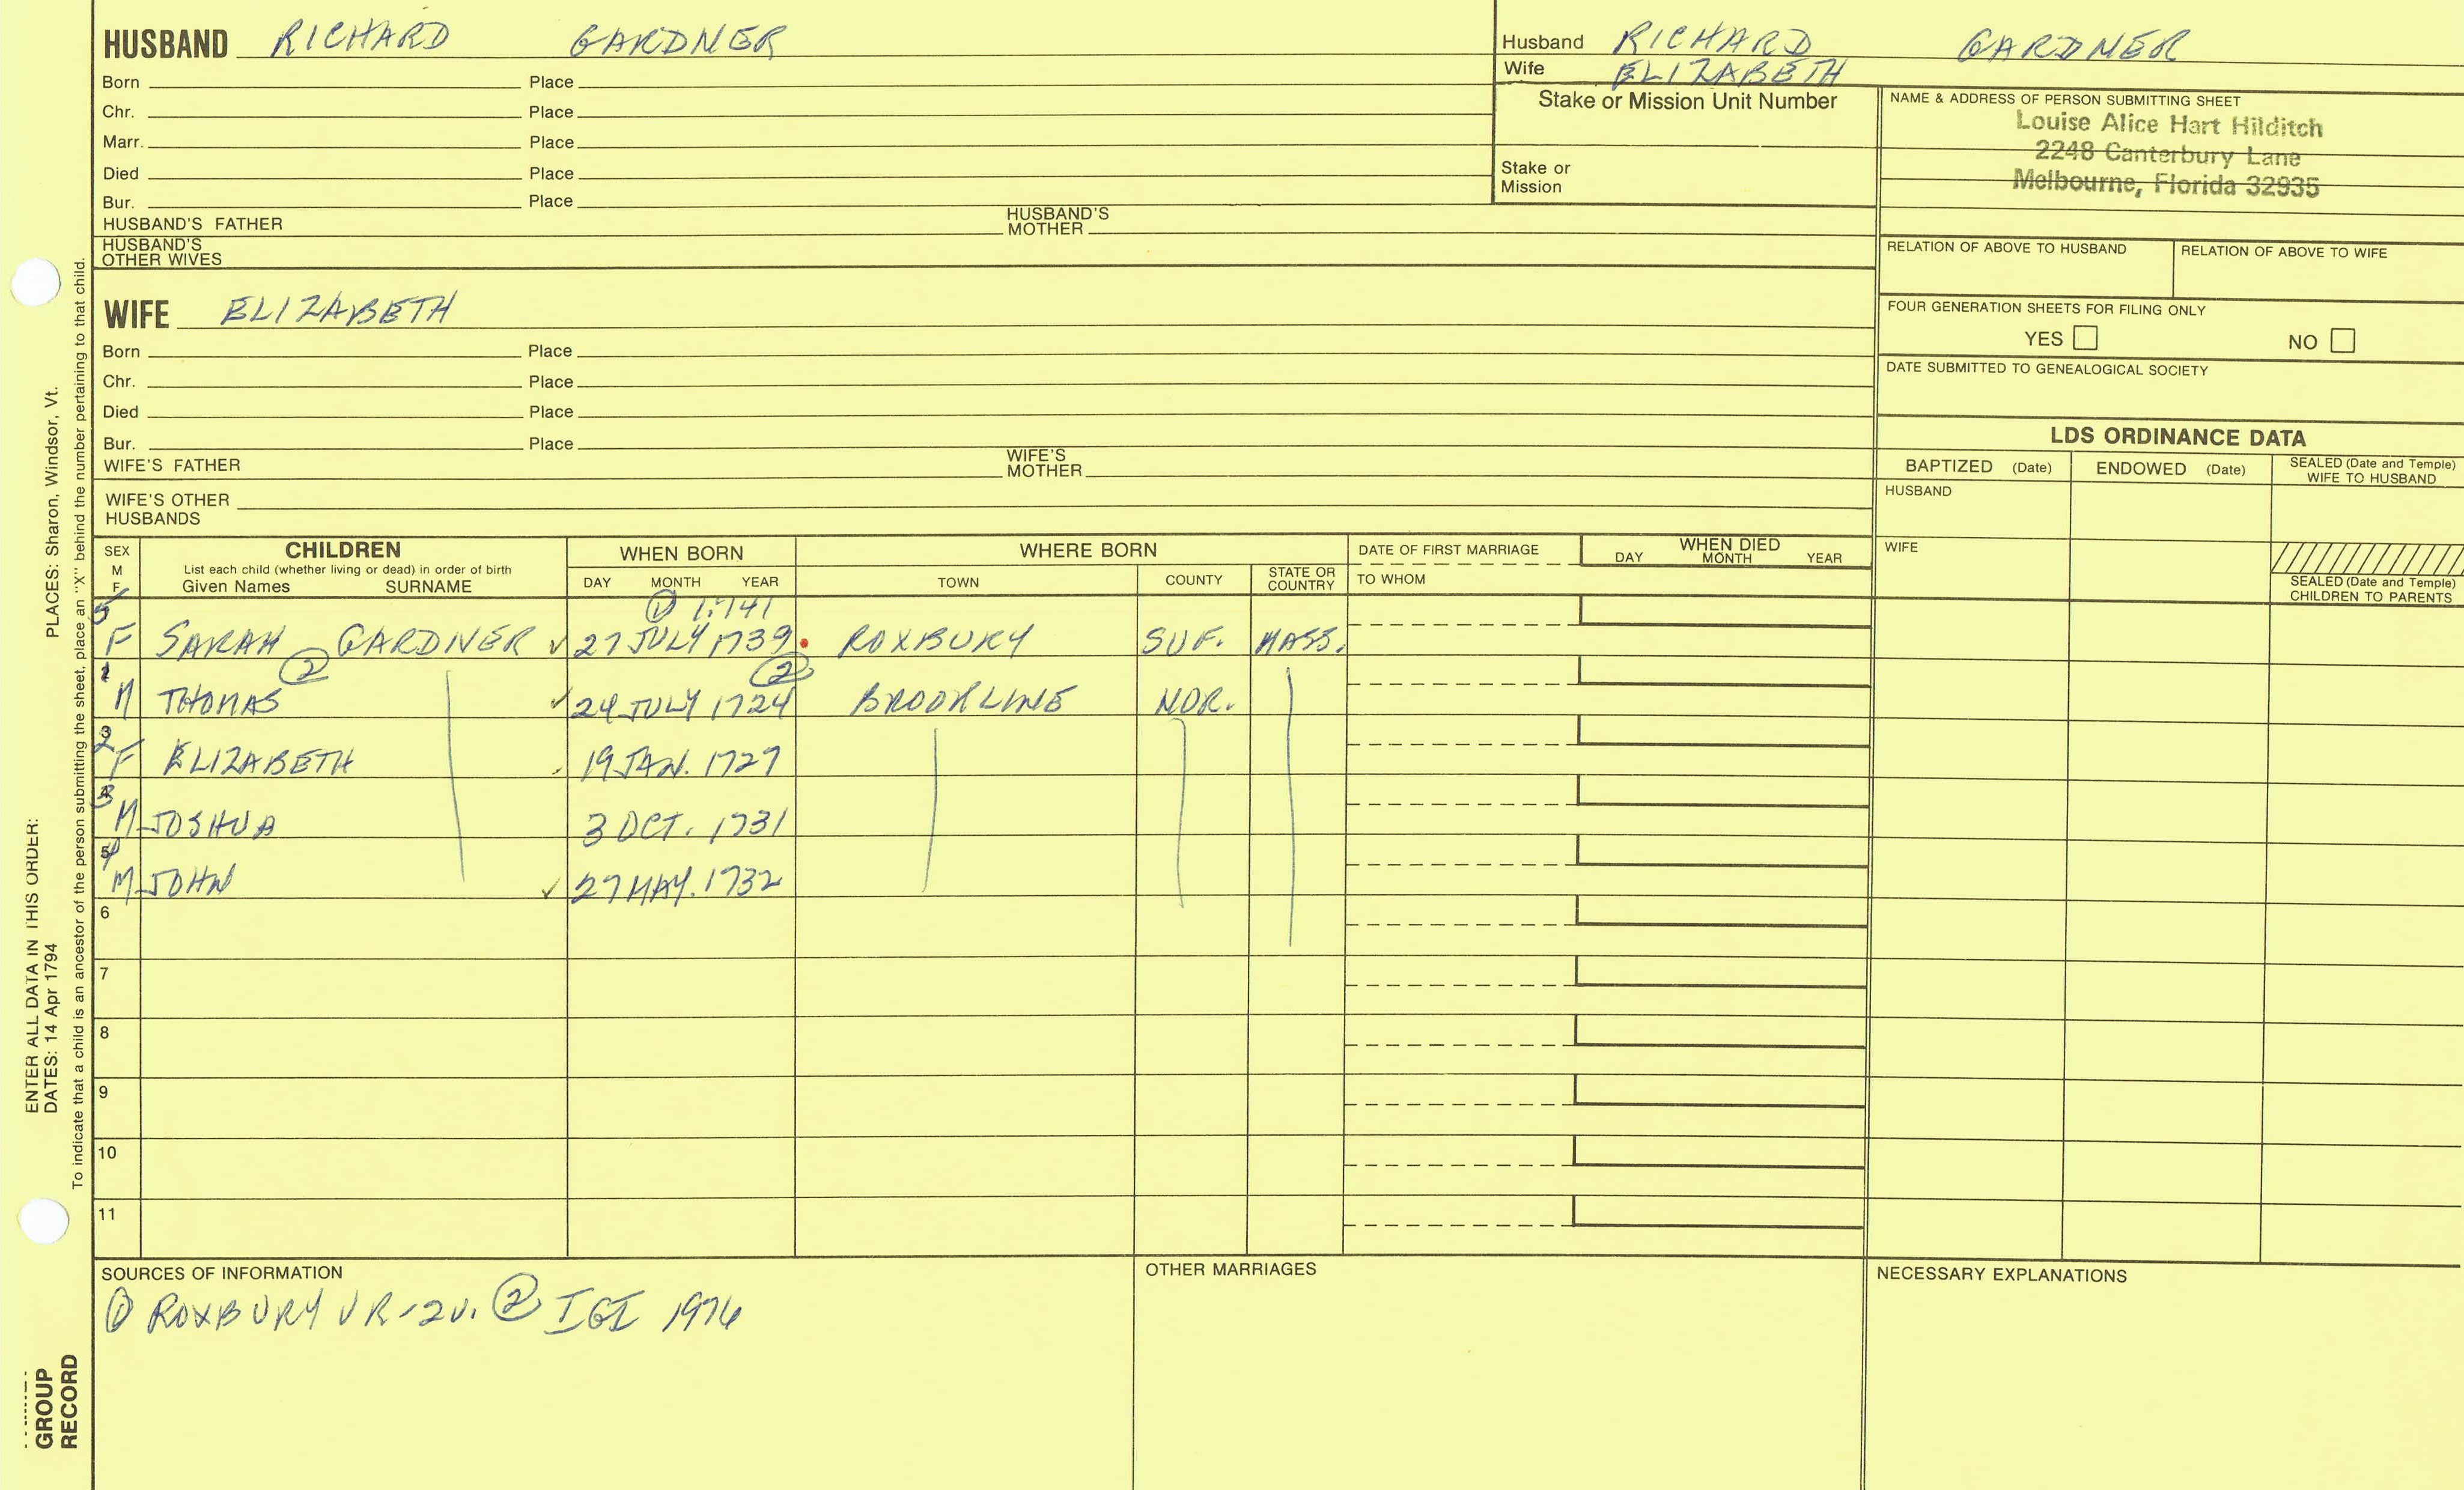 HUSBAND RICHARD GARDNER
Husband RICHARD GARDNER
Wife ELIZABETH
Born Place
Chr. Place
Marr. Place
Died Place
Bur. Place
HUSBAND'S FATHER HUSBAND'S MOTHER
HUSBAND'S OTHER WIVES
Stake or Mission Unit Number
Stake or Mission
NAME & ADDRESS OF PERSON SUBMITTING SHEET
Louise Alice Hart Hilditch
2248 Canterbury Lane
Melbourne, Florida 32935
RELATION OF ABOVE TO HUSBAND RELATION OF ABOVE TO WIFE
FOUR GENERATION SHEETS FOR FILING ONLY
YES NO
DATE SUBMITTED TO GENEALOGICAL SOCIETY
WIFE ELIZABETH
Born Place
Chr. Place
Died Place
Bur. Place
WIFE'S FATHER WIFE'S MOTHER
WIFE'S OTHER HUSBANDS
LDS ORDINANCE DATA
BAPTIZED (Date) ENDOWED (Date) SEALED (Date and Temple) WIFE TO HUSBAND
HUSBAND
WIFE
SEALED (Date and Temple) CHILDREN TO PARENTS
SEX M F
CHILDREN
List each child (whether living or dead) in order of birth
Given Names SURNAME
WHEN BORN
DAY MONTH YEAR
WHERE BORN
TOWN COUNTY STATE OR COUNTRY
DATE OF FIRST MARRIAGE
TO WHOM
WHEN DIED
DAY MONTH YEAR
① 1:141
5 F SARAH GARDNER ✓ 27 JULY 1739 ROXBURY SUF. MASS.
② ②
1 M THOMAS ✓ 24 JULY 1724 BROOKLINE NOR.
3 2 F ELIZABETH 19 JAN. 1727
3 M JOSHUA 3 OCT. 1731
5 4 M JOHN ✓ 27 MAY. 1732
6
7
8
9
10
11
SOURCES OF INFORMATION
① ROXBURY VR-2V. ② IGI 1976
OTHER MARRIAGES
NECESSARY EXPLANATIONS
ENTER ALL DATA IN THIS ORDER:
DATES: 14 Apr 1794 PLACES: Sharon, Windsor, Vt.
To indicate that a child is an ancestor of the person submitting the sheet, place an "X" behind the number pertaining to that child.
GROUP
RECORD